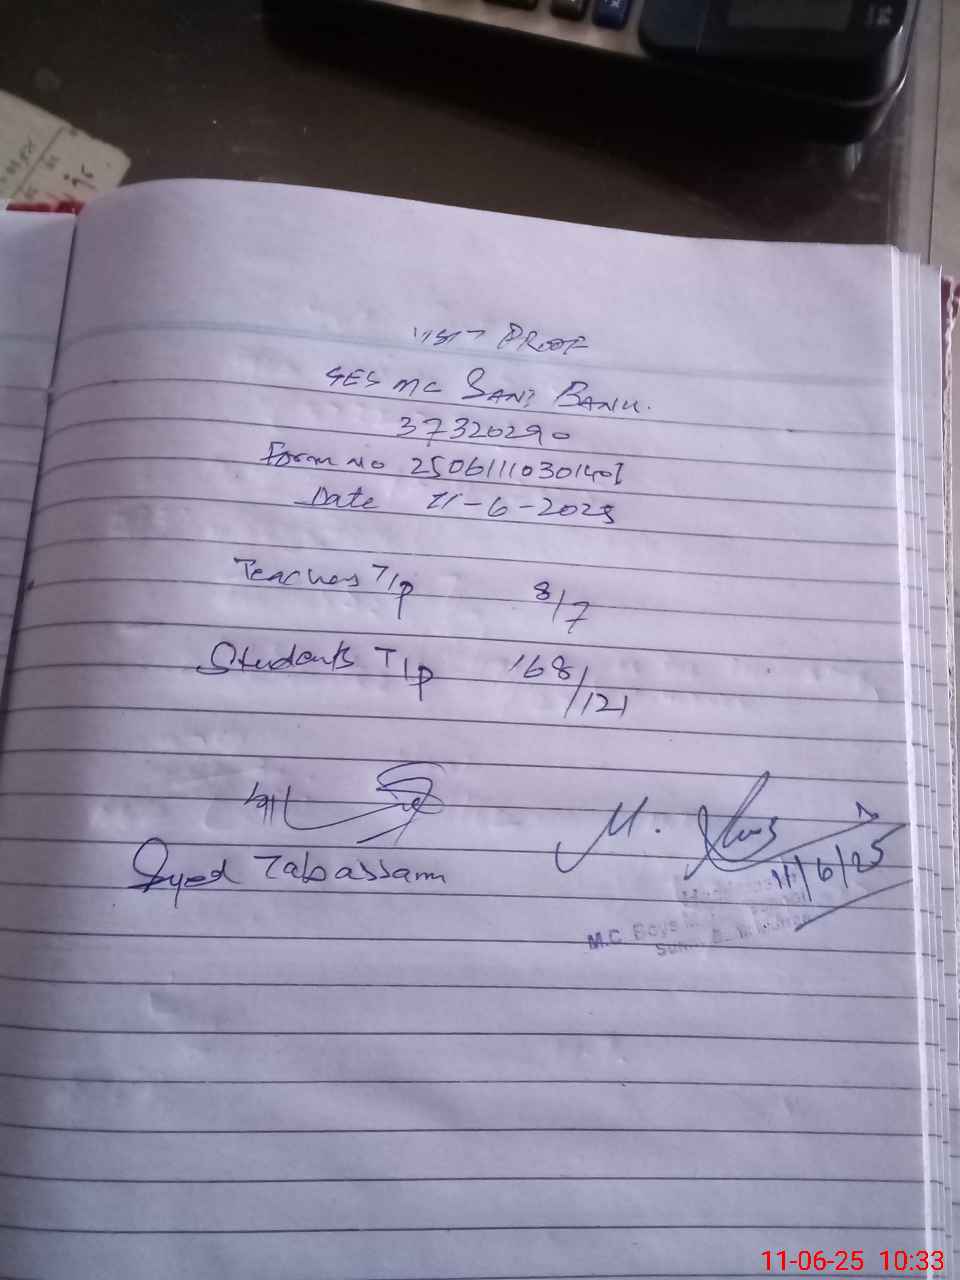 VISIT PROOF
GES MC SANI BANK.
37320290
Form No 25061110301401
Date 11-6-2025
Teachers T/P 8/7
Students T/P 168/121
Syed Tabassam
M.
11/6/25
M.C Boys
11-06-25 10:33